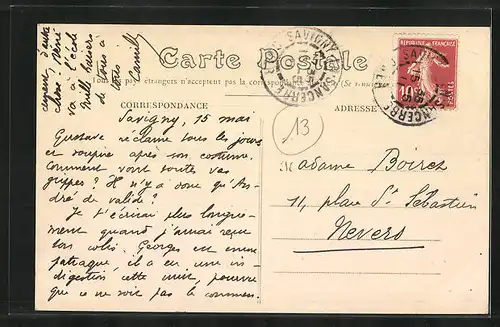 Carte Postale
pays étrangers n'acceptent pas la correspondance
CORRESPONDANCE
ADRESSE
RÉPUBLIQUE FRANÇAISE
10
13
SAVIGNY-EN-SANCERRE
Savigny, 15 mai
Gustave réclame tous les jours
et soupire après son costume.
Comment vont toutes vos
grippes? Il n'y a donc qu'An-
dré de valide?
Je t'écrirai plus longue-
ment quand j'aurai reçu
ton colis. Georges est encore
patraque, il a eu une in-
digestion cette nuit, pourvu
que ce ne soit pas le commen-
cement d'autre
chose, René
va à l'école
Mille baisers
de tous à
tous
Camille
Madame Boirez
11, place St Sébastien
Nevers